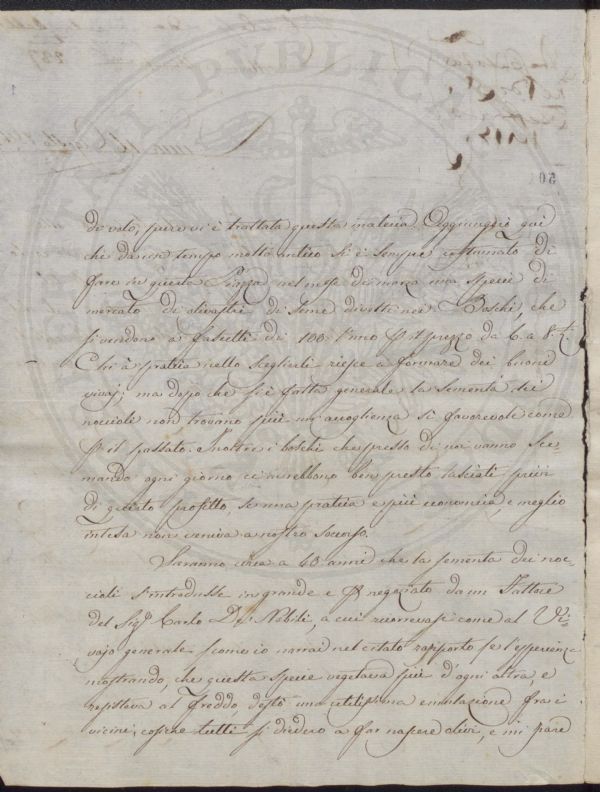 do voto, pure vi è trattata questa materia. Aggiungerò qui
che da un tempo molto antico si è sempre costumato di
fare in questa Piazza nel mese di marzo una specie di
mercato di olivastri di seme divelti nei Boschi, che
si vendono a fascetti di 100 l'uno p il prezzo da 6 a 8
Chi à pratica nello sceglierli riesce a formare dei buoni
vivaj; ma dopo che si è fatta generale la sementa dei
noccioli non trovano più un'accoglienza sì favorevole come
p il passato. Inoltre i boschi che presso di noi vanno sce-
mando ogni giorno ci avrebbono ben presto lasciati privi
di questo profitto, se una pratica e più economica e meglio
intesa non veniva a nostro soccorso.
Saranno circa a 40 anni che la sementa dei noc-
cioli s'introdusse in grande e p negoziato da un Fattore
del Sig. Carlo De' Nobili, a cui ricorrevasi come al Vi-
vajo generale siccome io narrai nel citato rapporto. se l'esperienza
mostrando, che questa specie vegetava più d'ogni altra e
resisteva al freddo destò una utilissima emulazione fra i
vicini, cosiche tutti si diedero a far nascere olivi, e mi pare